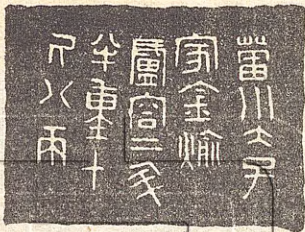 菑川大子
家金
盧容二
半重十
斤八兩